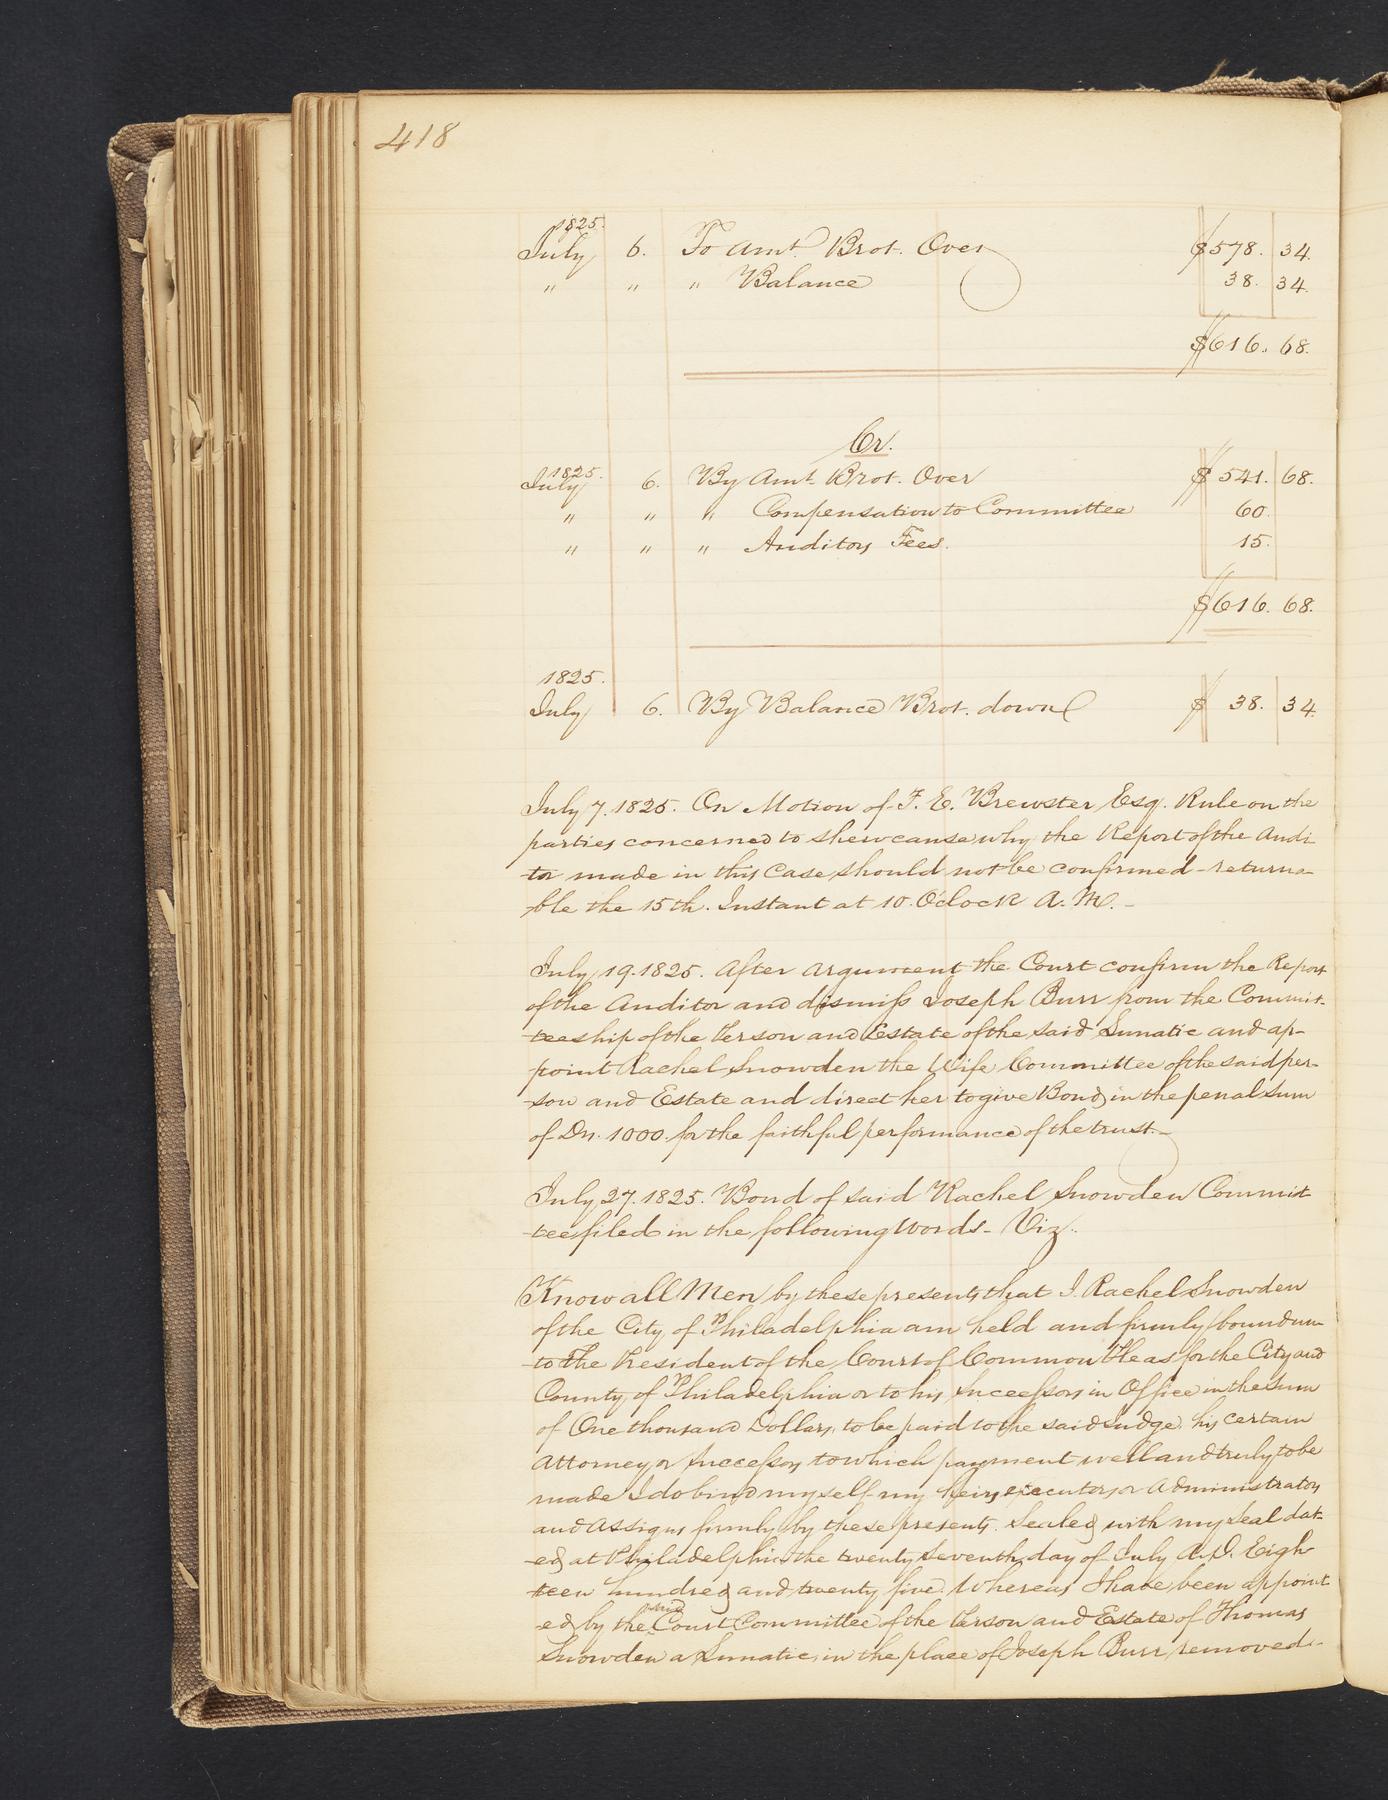 418
1825.
July 6. To Amt. Brot. Over $578. 34.
" " " Balance 38. 34.
$616. 68.
Cr.
1825.
July 6. By Amt. Brot. Over $541. 68.
" " " Compensation to Committee 60.
" " " Auditors Fees. 15.
$616. 68.
1825.
July 6. By Balance Brot. down $ 38. 34.
July 7. 1825. On Motion of F. E. Brewster Esq. Rule on the
parties concerned to shew cause why the Report of the Audi-
tor made in this Case should not be confirmed - returna-
ble the 15th. Instant at 10. O'clock A. M. -
July 19. 1825. After argument the Court confirm the Report
of the Auditor and dismiss Joseph Burr from the Commit-
teeship of the Person and Estate of the said Lunatic and ap-
point Rachel Snowden the Wife Committee of the said per-
son and Estate and direct her to give Bond in the penal sum
of Drs. 1000. for the faithful performance of the trust. -
July 27. 1825. Bond of said Rachel Snowden Commit
tee filed in the following words - Viz..
Know all Men by these presents that I. Rachel Snowden
of the City of Philadelphia am held and firmly bound un-
to the President of the Court of Common Pleas for the City and
County of Philadelphia or to his Successors in Office in the sum
of One thousand Dollars, to be paid to the said Judge, his certain
Attorney or Successors to which payment well and truly to be
made I do bind myself my heirs executors or administrators
and assigns firmly by these presents. Sealed with my seal dat-
ed at Philadelphia the twenty seventh day of July A. D. Eigh-
teen hundred and twenty five. Whereas I have been appoint-
ed by the said Court Committee of the Person and Estate of Thomas
Snowden a Lunatic, in the place of Joseph Burr removed. -